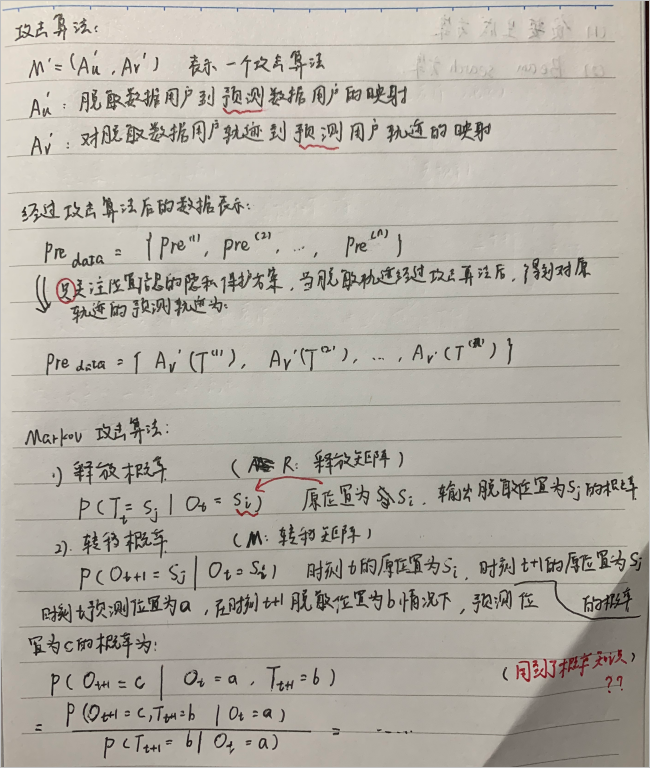 攻击算法:
M' = (Au', Av') 表示一个攻击算法
Au': 脱敏数据用户到预测数据用户的映射
Av': 对脱敏数据用户轨迹到预测用户轨迹的映射
经过攻击算法后的数据表示:
Pre data = { Pre⁽¹⁾, pre⁽²⁾, ..., Pre⁽ⁿ⁾ }
只关注位置信息的隐私保护方案, 当脱敏轨迹经过攻击算法后, 得到对原
轨迹的预测轨迹为:
Pre data = { Av'(T⁽¹⁾), Av'(T⁽²⁾), ..., Av'(T) }
Markov 攻击算法:
1) 释放概率 (R: 释放矩阵)
P(Tt = Sj | Ot = Si) 原位置为Si, 输出脱敏位置为Sj的概率
2). 转移概率 (M: 转移矩阵)
P(Ot+1 = Sj | Ot = Si) 时刻t的原位置为Si, 时刻t+1的原位置为Sj
的概率
时刻t预测位置为a, 在时刻t+1脱敏位置为b情况下, 预测位
置为c的概率为:
P(Ot+1 = c | Ot = a, Tt+1 = b) (用到了概率知识)
??
= P(Ot+1 = c, Tt+1 = b | Ot = a)
P(Tt+1 = b | Ot = a) = ......